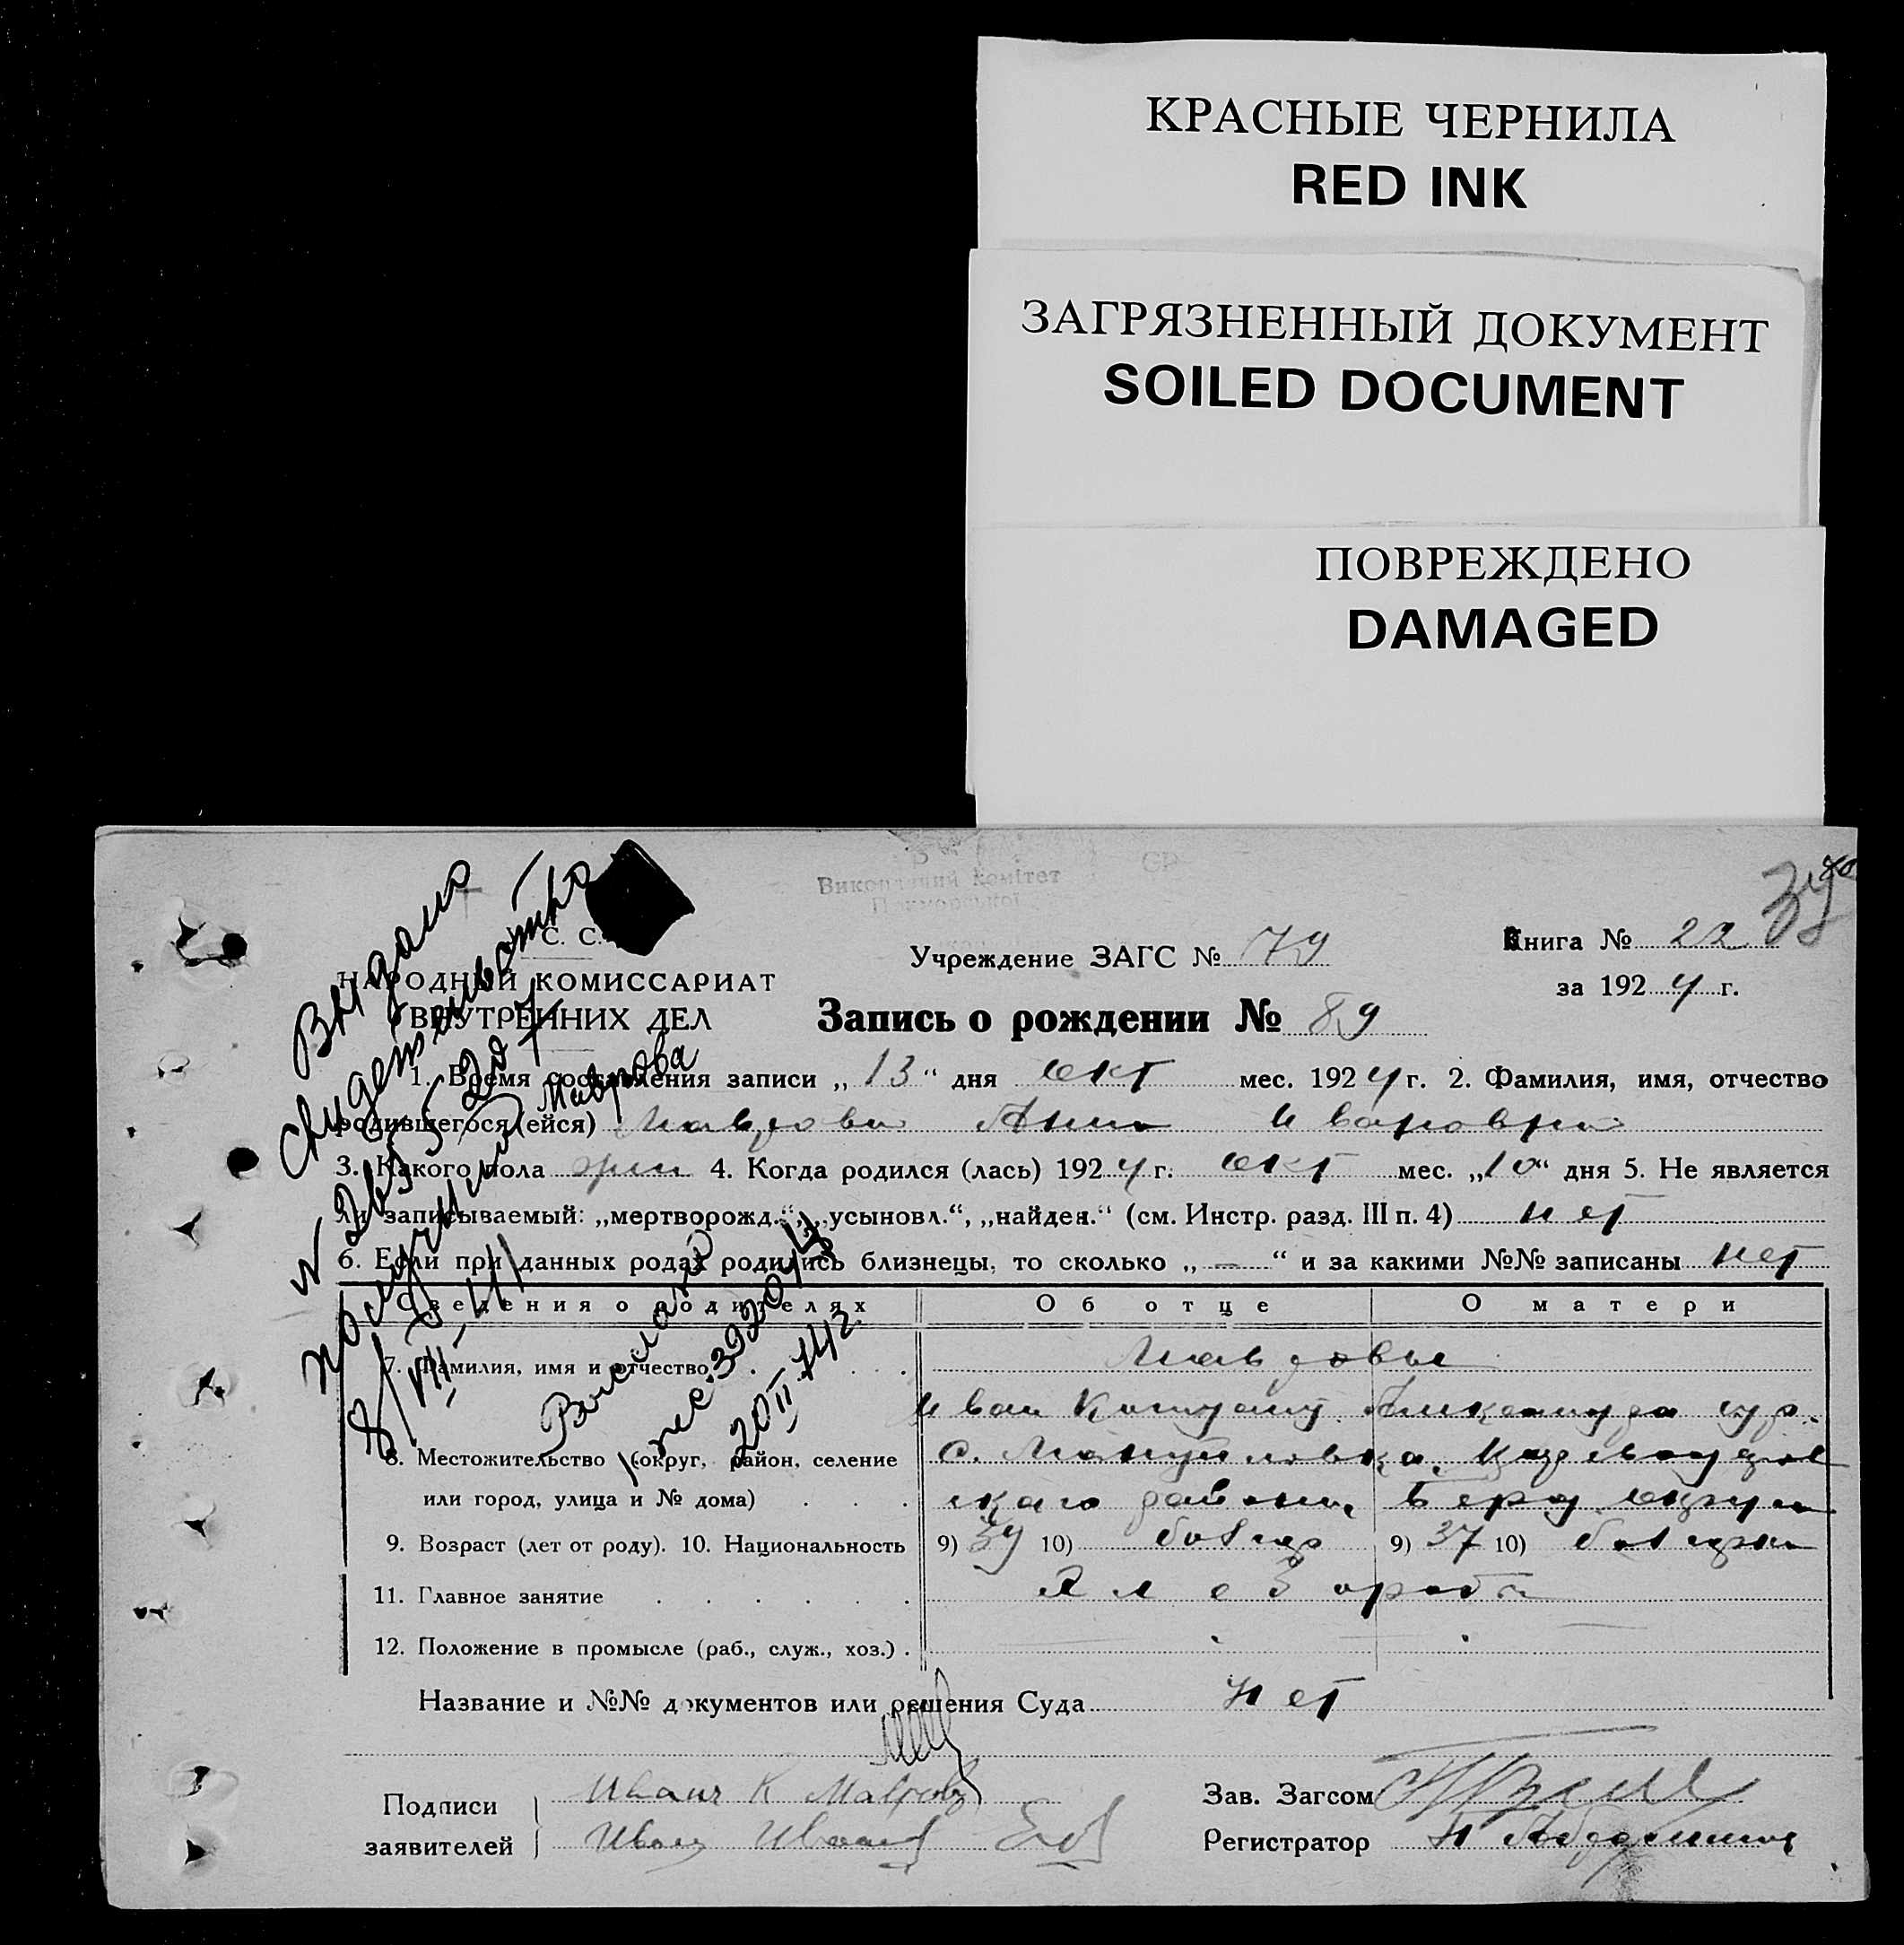 КРАСНЫЕ ЧЕРНИЛА
RED INK
ЗАГРЯЗНЕННЫЙ ДОКУМЕНТ
SOILED DOCUMENT
ПОВРЕЖДЕНО
DAMAGED
Виконавчий Комітет
С. С.
НАРОДНЫЙ КОМИССАРИАТ
ВНУТРЕННИХ ДЕЛ
Учреждение ЗАГС № 79
Книга № 22
за 1924 г.
Запись о рождении № 89
1. Время составления записи „13“ дня окт мес. 1924 г. 2. Фамилия, имя, отчество
родившегося (ейся) Маврова Анна Ивановна
3. Какого пола жен 4. Когда родился (лась) 1924 г. окт мес. „10“ дня 5. Не является
ли записываемый: „мертворожд.“, „усыновл.“, „найден.“ (см. Инстр. разд. III п. 4) нет
6. Если при данных родах родились близнецы, то сколько „—“ и за какими №№ записаны нет
Сведения о родителях Об отце О матери
7. Фамилия, имя и отчество Мавровы
Иван Александра
8. Местожительство (округ, район, селение с.
или город, улица и № дома) района
9. Возраст (лет от роду). 10. Национальность 9) 39 10) болгар 9) 37 10) болгарка
11. Главное занятие
12. Положение в промысле (раб., служ., хоз.)
Название и №№ документов или решения Суда нет
Подписи Иван К Мавров
заявителей Иван Иванов
Зав. Загсом
Регистратор
Выдано
свидетельство
получил Маврова
8/VIII-41
Выслано
20 II 742